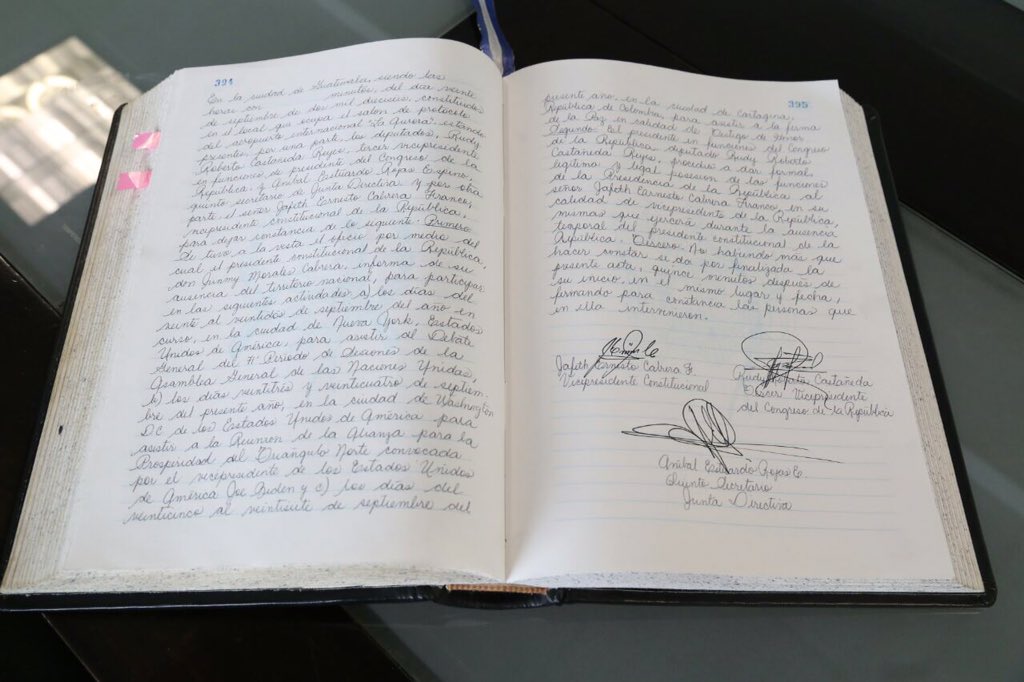 394
En la ciudad de Guatemala, siendo las
horas con minutos, del día veinte
de septiembre de dos mil dieciséis, constituidos
en el local que ocupa el salón de protocolo
del aeropuerto internacional "La Aurora", estando
presentes por una parte los diputados, Rudy
Roberto Castañeda Reyes, tercer vicepresidente
en funciones de presidente del Congreso de la
República, y Aníbal Estuardo Rojas Espino,
quinto secretario de Junta Directiva y por otra
parte, el señor Jafeth Ernesto Cabrera Franco,
vicepresidente constitucional de la República,
para dejar constancia de lo siguiente: Primero:
Se tuvo a la vista el oficio por medio del
cual el presidente constitucional de la República,
don Jimmy Morales Cabrera, informa de su
ausencia del territorio nacional, para participar
en las siguientes actividades a) los días del
veinte al veintidos de septiembre del año en
curso, en la ciudad de Nueva York, Estados
Unidos de América, para asistir del Debate
General del 71° Periodo de Sesiones de la
Asamblea General de las Naciones Unidas,
b) los días veintitrés y veinticuatro de septiem-
bre del presente año, en la ciudad de Washington
D.C. de los Estados Unidos de América para
asistir a la Reunión de la Alianza para la
Prosperidad del Triangulo Norte convocada
por el vicepresidente de los Estados Unidos
de América Joe Biden y c) los días del
veinticinco al veintisiete de septiembre del
395
presente año, en la ciudad de Cartagena,
República de Colombia, para asistir a la firma
de la Paz en calidad de Testigo de Honor
Segundo: El presidente en funciones del Congreso
de la República diputado Rudy Roberto
Castañeda Reyes, procedió a dar formal,
legitima y legal posesion de las funciones
de la Presidencia de la República al
señor Jafeth Ernesto Cabrera Franco, en su
calidad de vicepresidente de la República,
mismas que ejercerá durante la ausencia
temporal del presidente constitucional de la
República. Tercero: No habiendo más que
hacer constar se da por finalizada la
presente acta, quince minutos después de
su inicio, en el mismo lugar y fecha,
firmando para constancia las personas que
en ella intervinieron.
Jafeth Ernesto Cabrera F.
Vicepresidente Constitucional
Rudy Roberto Castañeda
Tercer Vicepresidente
del Congreso de la República
Aníbal Estuardo Rojas E.
Quinto Secretario
Junta Directiva